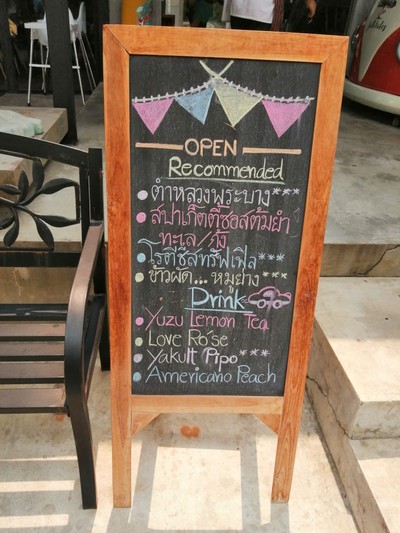 OPEN
Recommended
ตำหลวงพระบาง***
สปาเก็ตตี้ซอสต้มยำ
ทะเล/กุ้ง
โรตีชีสทรัฟเฟิล***
ข้าวผัด...หมูย่าง***
Drink
Yuzu Lemon Tea
Love Ro'se
Yakult Pipo***
Americano Peach